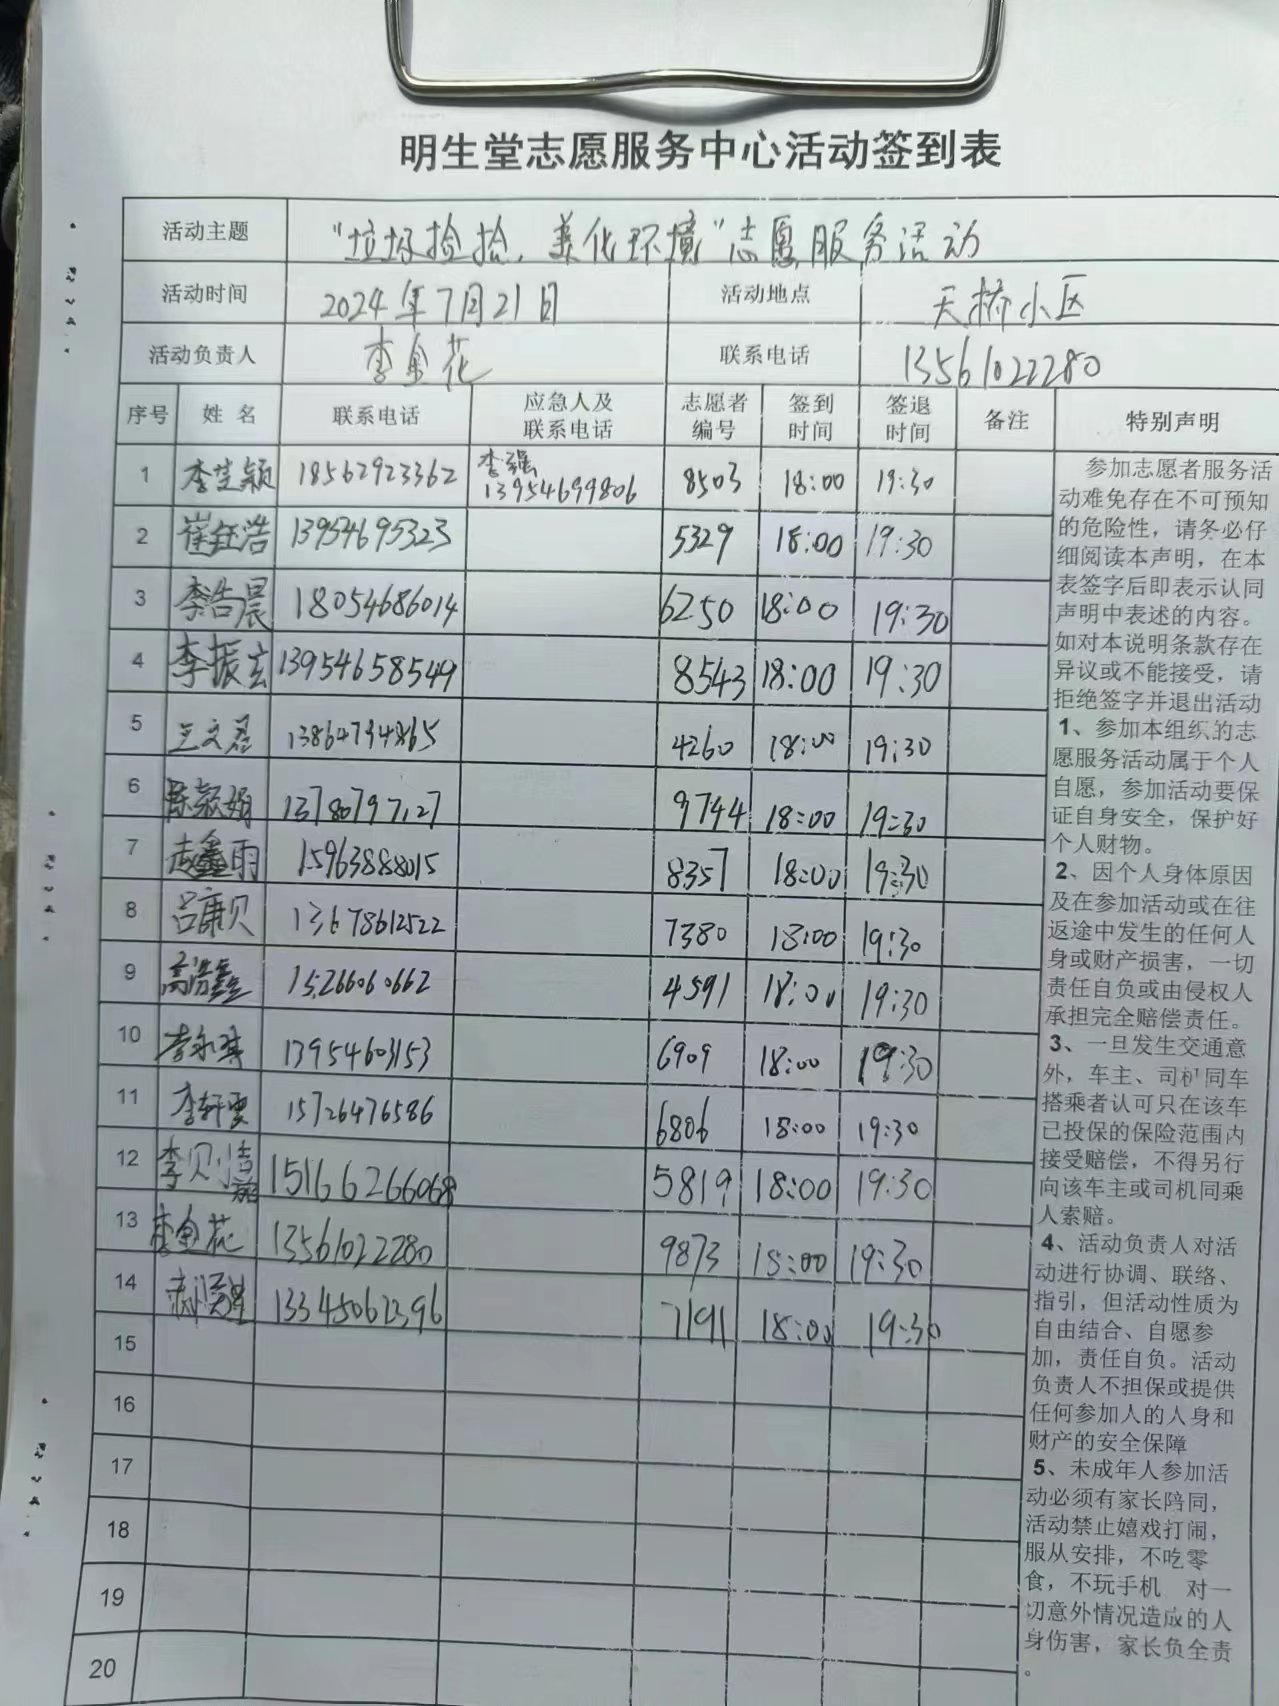 明生堂志愿服务中心活动签到表
活动主题 “垃圾捡拾，美化环境”志愿服务活动
活动时间 2024年7月21日 活动地点 天桥小区
活动负责人 李金花 联系电话 13561022280
序号 姓名 联系电话 应急人及联系电话 志愿者编号 签到时间 签退时间 备注 特别声明
1 18562923362 李强 13954699806 8503 18:00 19:30
2 崔钰浩 13954695323 5329 18:00 19:30
3 李浩晨 18054686014 6250 18:00 19:30
4 李振玄 13954658549 8543 18:00 19:30
5 王文君 13864794865 4260 18:00 19:30
6 13780797127 9744 18:00 19:30
7 鑫雨 15963888015 8357 18:00 19:30
8 吕康贝 13678612522 7380 18:00 19:30
9 高浩鑫 15266060662 4591 18:00 19:30
10 李永琪 13954603153 6909 18:00 19:30
11 李轩雯 15726476586 6806 18:00 19:30
12 李贝 15166266068 5819 18:00 19:30
13 李金花 13561022280 9873 18:00 19:30
14 13345062396 7191 18:00 19:30
15
16
17
18
19
20
参加志愿者服务活
动难免存在不可预知
的危险性，请务必仔
细阅读本声明，在本
表签字后即表示认同
声明中表述的内容。
如对本说明条款存在
异议或不能接受，请
拒绝签字并退出活动
1、参加本组织的志
愿服务活动属于个人
自愿，参加活动要保
证自身安全，保护好
个人财物。
2、因个人身体原因
及在参加活动或在往
返途中发生的任何人
身或财产损害，一切
责任自负或由侵权人
承担完全赔偿责任。
3、一旦发生交通意
外，车主、司机同车
搭乘者认可只在该车
已投保的保险范围内
接受赔偿，不得另行
向该车主或司机同乘
人索赔。
4、活动负责人对活
动进行协调、联络、
指引，但活动性质为
自由结合、自愿参
加，责任自负。活动
负责人不担保或提供
任何参加人的人身和
财产的安全保障
5、未成年人参加活
动必须有家长陪同，
活动禁止嬉戏打闹，
服从安排，不吃零
食，不玩手机 对一
切意外情况造成的人
身伤害，家长负全责
。